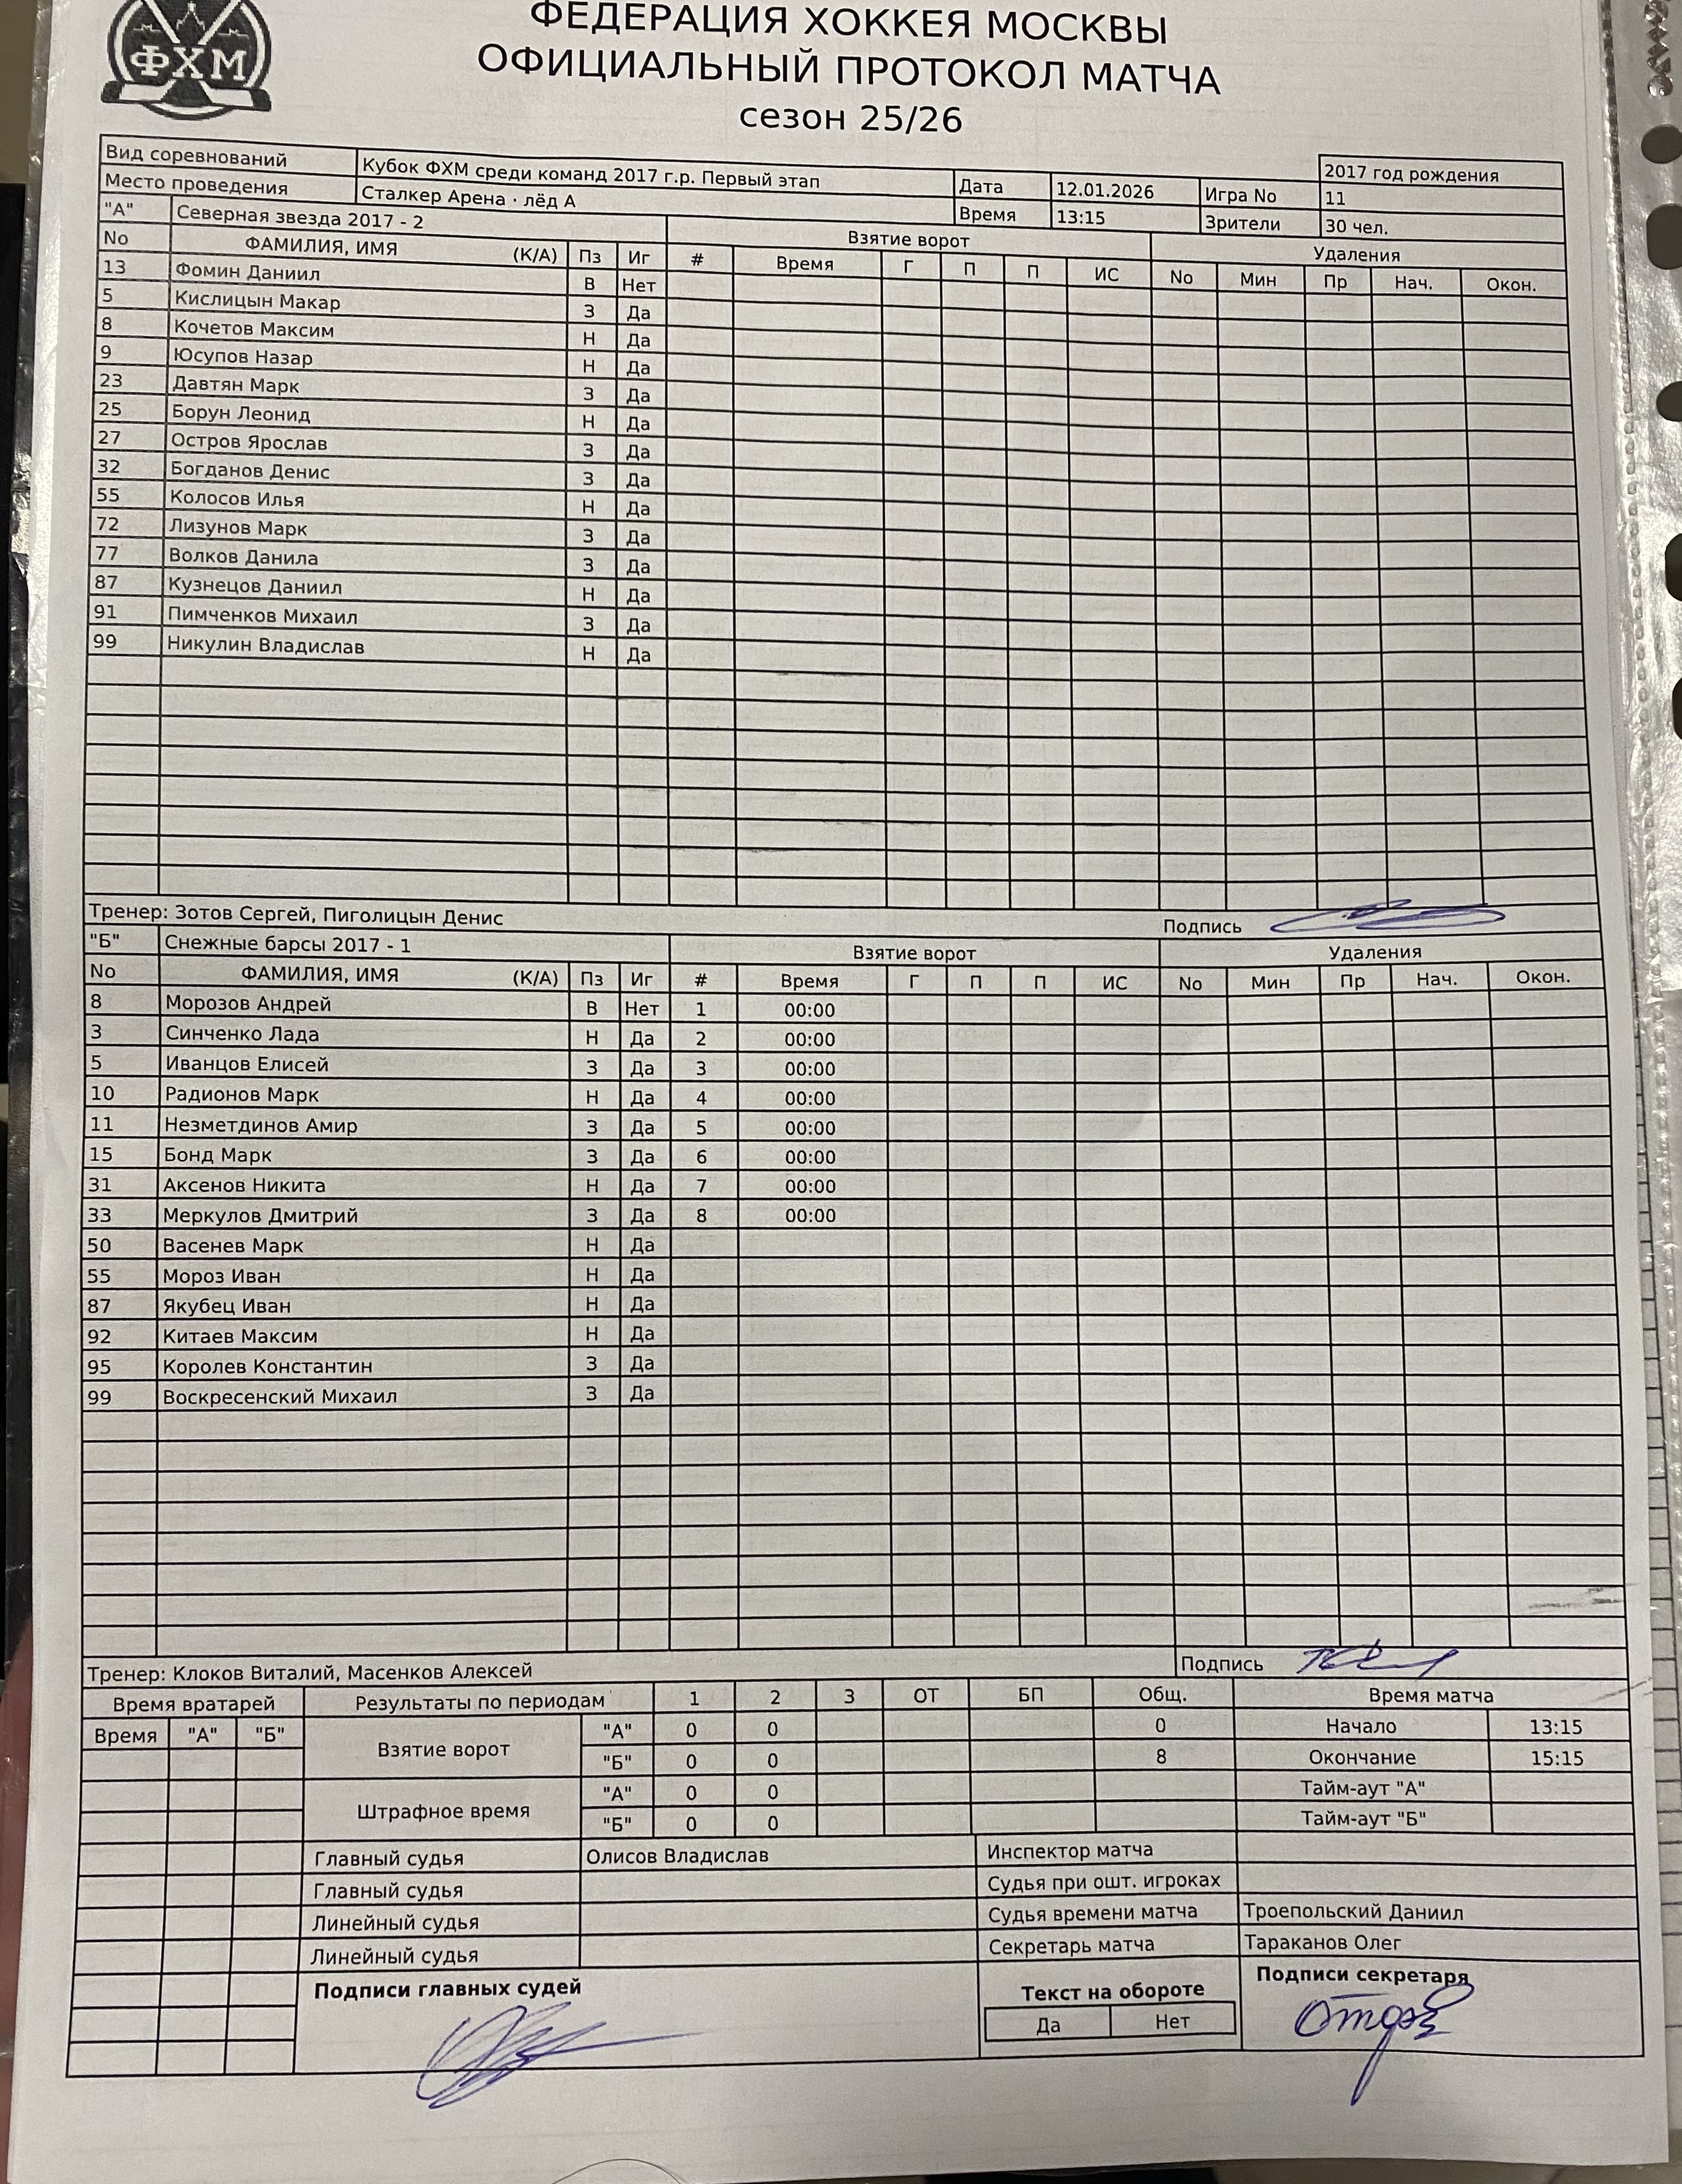 ФЕДЕРАЦИЯ ХОККЕЯ МОСКВЫ
ФХМ
ОФИЦИАЛЬНЫЙ ПРОТОКОЛ МАТЧА
сезон 25/26
Вид соревнований Кубок ФХМ среди команд 2017 г.р. Первый этап 2017 год рождения
Место проведения Сталкер Арена · лёд А Дата 12.01.2026 Игра No 11
Время 13:15 Зрители 30 чел.
"А" Северная звезда 2017 - 2 Взятие ворот Удаления
No ФАМИЛИЯ, ИМЯ (К/А) Пз Иг # Время Г П П ИС No Мин Пр Нач. Окон.
13 Фомин Даниил В Нет
5 Кислицын Макар З Да
8 Кочетов Максим Н Да
9 Юсупов Назар Н Да
23 Давтян Марк З Да
25 Борун Леонид Н Да
27 Остров Ярослав З Да
32 Богданов Денис З Да
55 Колосов Илья Н Да
72 Лизунов Марк З Да
77 Волков Данила З Да
87 Кузнецов Даниил Н Да
91 Пимченков Михаил З Да
99 Никулин Владислав Н Да
Тренер: Зотов Сергей, Пиголицын Денис Подпись
"Б" Снежные барсы 2017 - 1 Взятие ворот Удаления
No ФАМИЛИЯ, ИМЯ (К/А) Пз Иг # Время Г П П ИС No Мин Пр Нач. Окон.
8 Морозов Андрей В Нет 1 00:00
3 Синченко Лада Н Да 2 00:00
5 Иванцов Елисей З Да 3 00:00
10 Радионов Марк Н Да 4 00:00
11 Незметдинов Амир З Да 5 00:00
15 Бонд Марк З Да 6 00:00
31 Аксенов Никита Н Да 7 00:00
33 Меркулов Дмитрий З Да 8 00:00
50 Васенев Марк Н Да
55 Мороз Иван Н Да
87 Якубец Иван Н Да
92 Китаев Максим Н Да
95 Королев Константин З Да
99 Воскресенский Михаил З Да
Тренер: Клоков Виталий, Масенков Алексей Подпись
Время вратарей Результаты по периодам 1 2 3 ОТ БП Общ. Время матча
Время "А" "Б" Взятие ворот "А" 0 0 0 Начало 13:15
"Б" 0 0 8 Окончание 15:15
Штрафное время "А" 0 0 Тайм-аут "А"
"Б" 0 0 Тайм-аут "Б"
Главный судья Олисов Владислав Инспектор матча
Главный судья Судья при ошт. игроках
Линейный судья Судья времени матча Троепольский Даниил
Линейный судья Секретарь матча Тараканов Олег
Подписи главных судей Текст на обороте Подписи секретаря
Да Нет